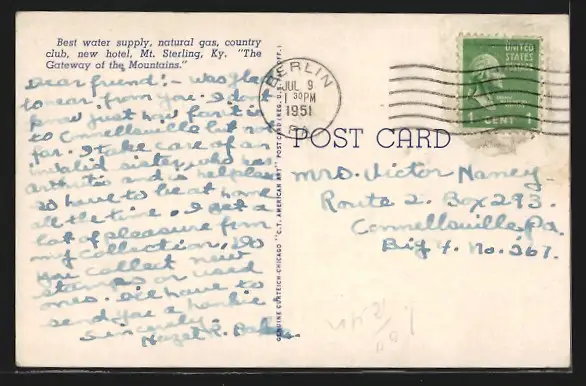 Best water supply, natural gas, country
club, new hotel, Mt. Sterling, Ky. "The
Gateway of the Mountains."
Dear friend:- Was glad
to hear from you. I don't
know just how far it is
to Connellsville but not
far. I take care of an
invalid sister who has
arthritis and is helpless
so have to be at home
all the time. I get a
lot of pleasure from
my collection. Do
you collect new
stamps or used
ones. I'll have to
send you a hankie
Sincerely,
Hazel R.
GENUINE CURTEICH-CHICAGO "C.T. AMERICAN ART" POST CARD (REG. U.S. PAT. OFF.)
BERLIN
JUL 9
1 30 PM
1951
PA.
UNITED
STATES
POSTAGE
1 CENT 1
POST CARD
Mrs. Victor Naney
Route 2. Box 293.
Connellsville, Pa.
Big 4. No. 367.